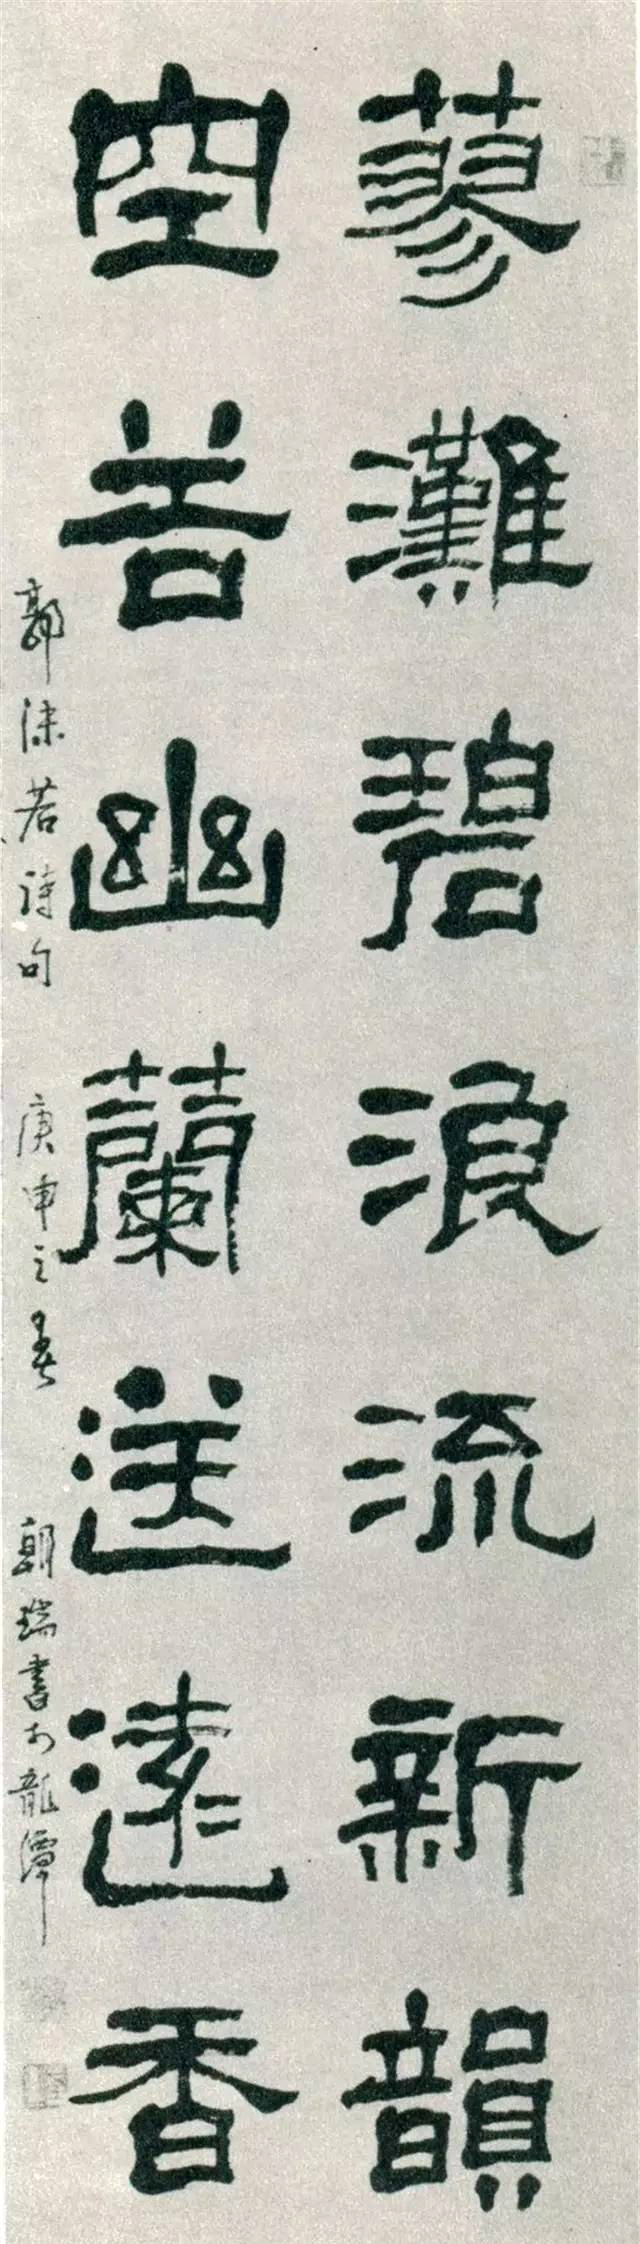 蓼灘碧浪流新韻
空谷幽蘭送遠香
郭沫若詩句 庚申之春 朝瑞書於龍潭